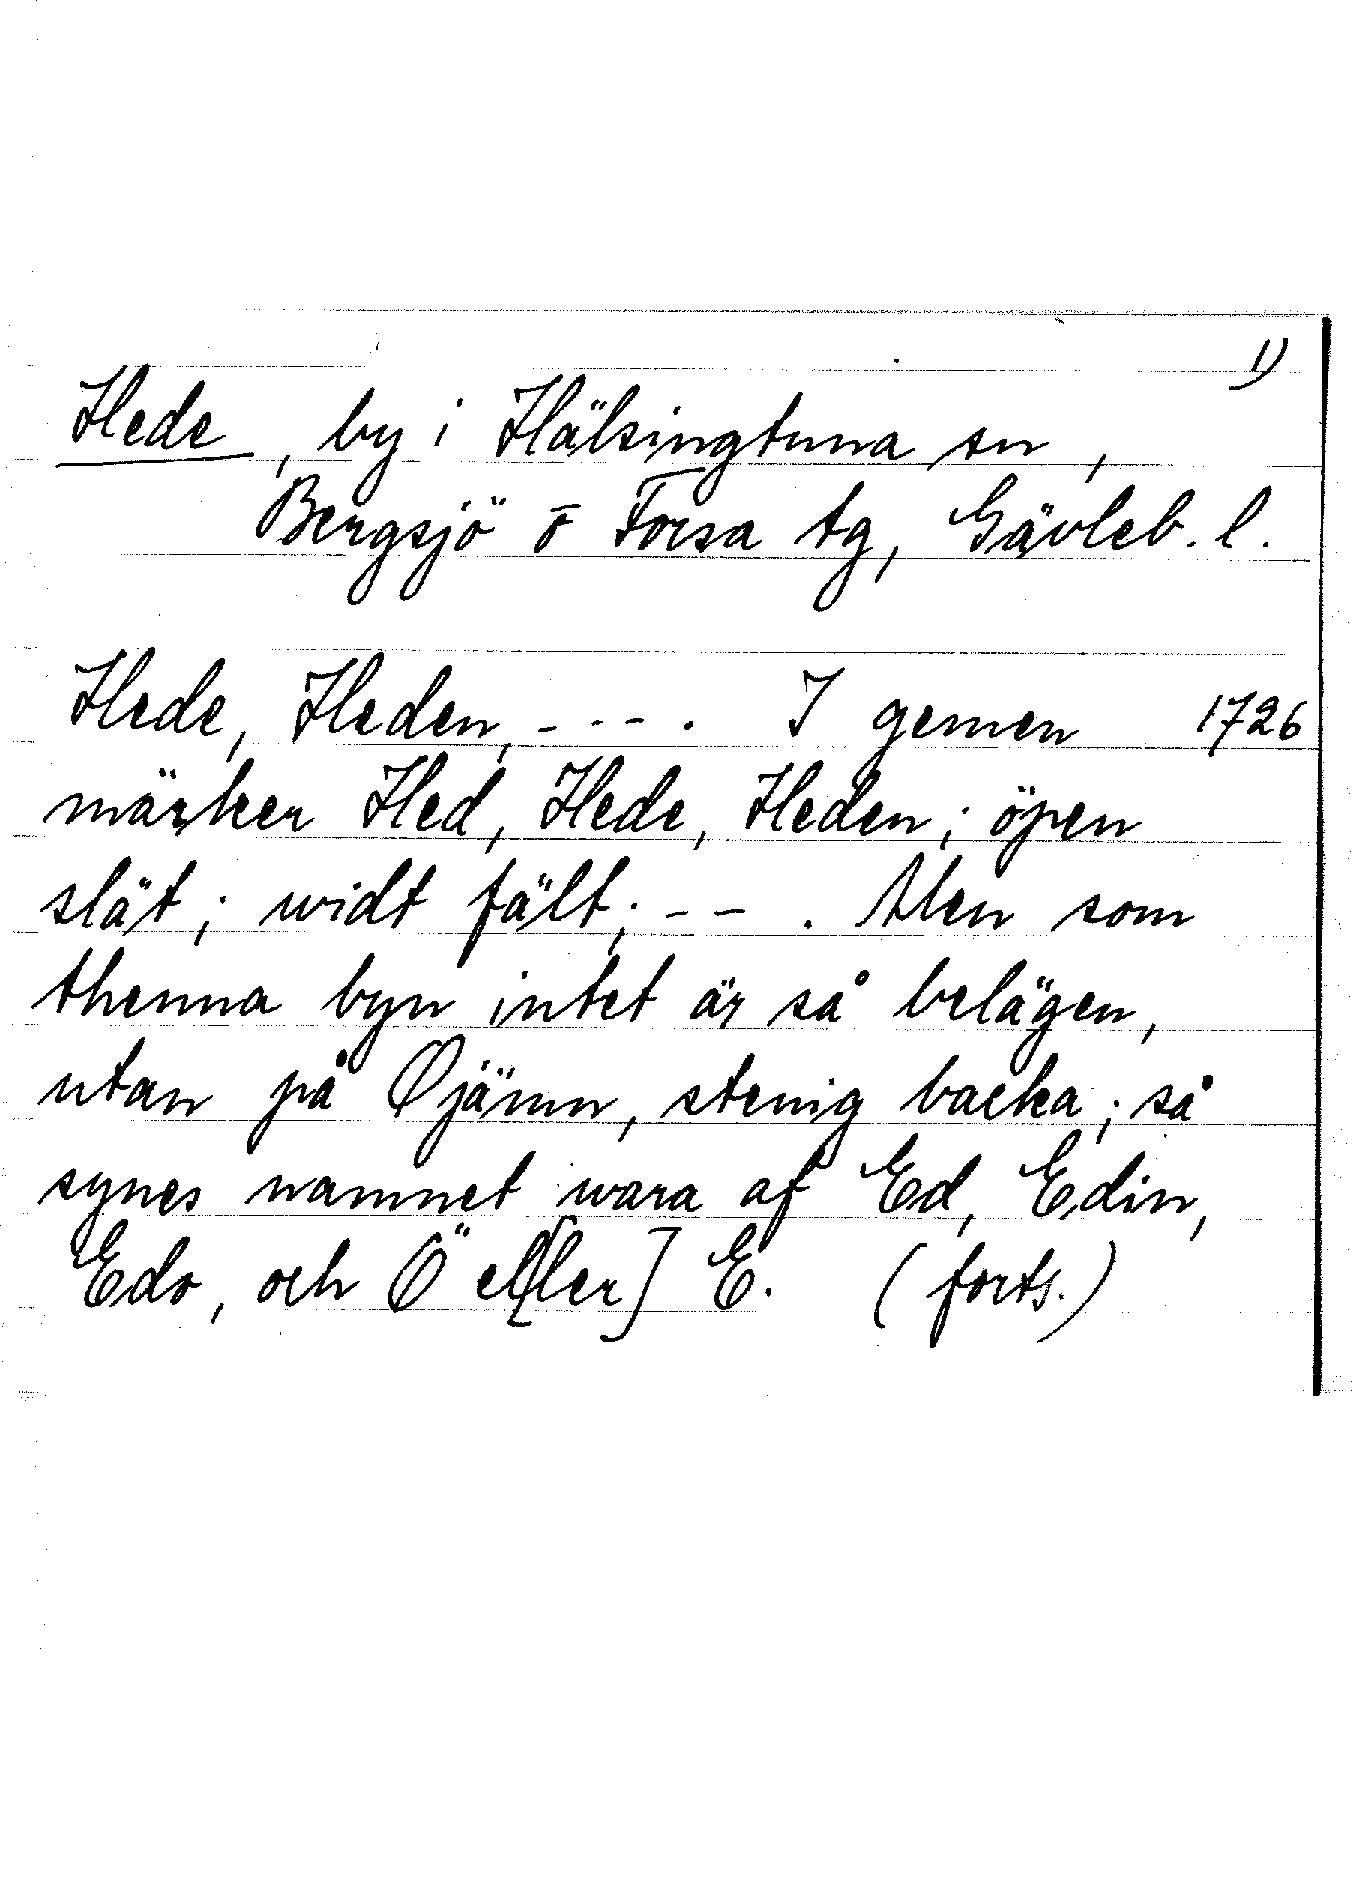 1)
Hede, by i Hälsingtuna sn,
Bergsjö o Forsa tg, Gävleb. l.
Hede, Heden, - - - . I gemen 1726
märker Hed, Hede, Heden; öpen
slät; widt fält; - - . Men som
thenna byn intet är så belägen,
utan på Ojämn, stenig backa; så
synes namnet wara af Ed, Edin,
Edo, och Ö el[ler] E. (forts.)